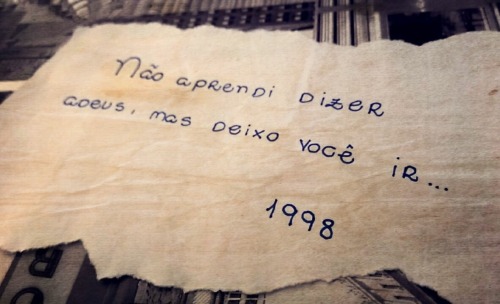 Não aprendi dizer
adeus, mas deixo você ir...
1998